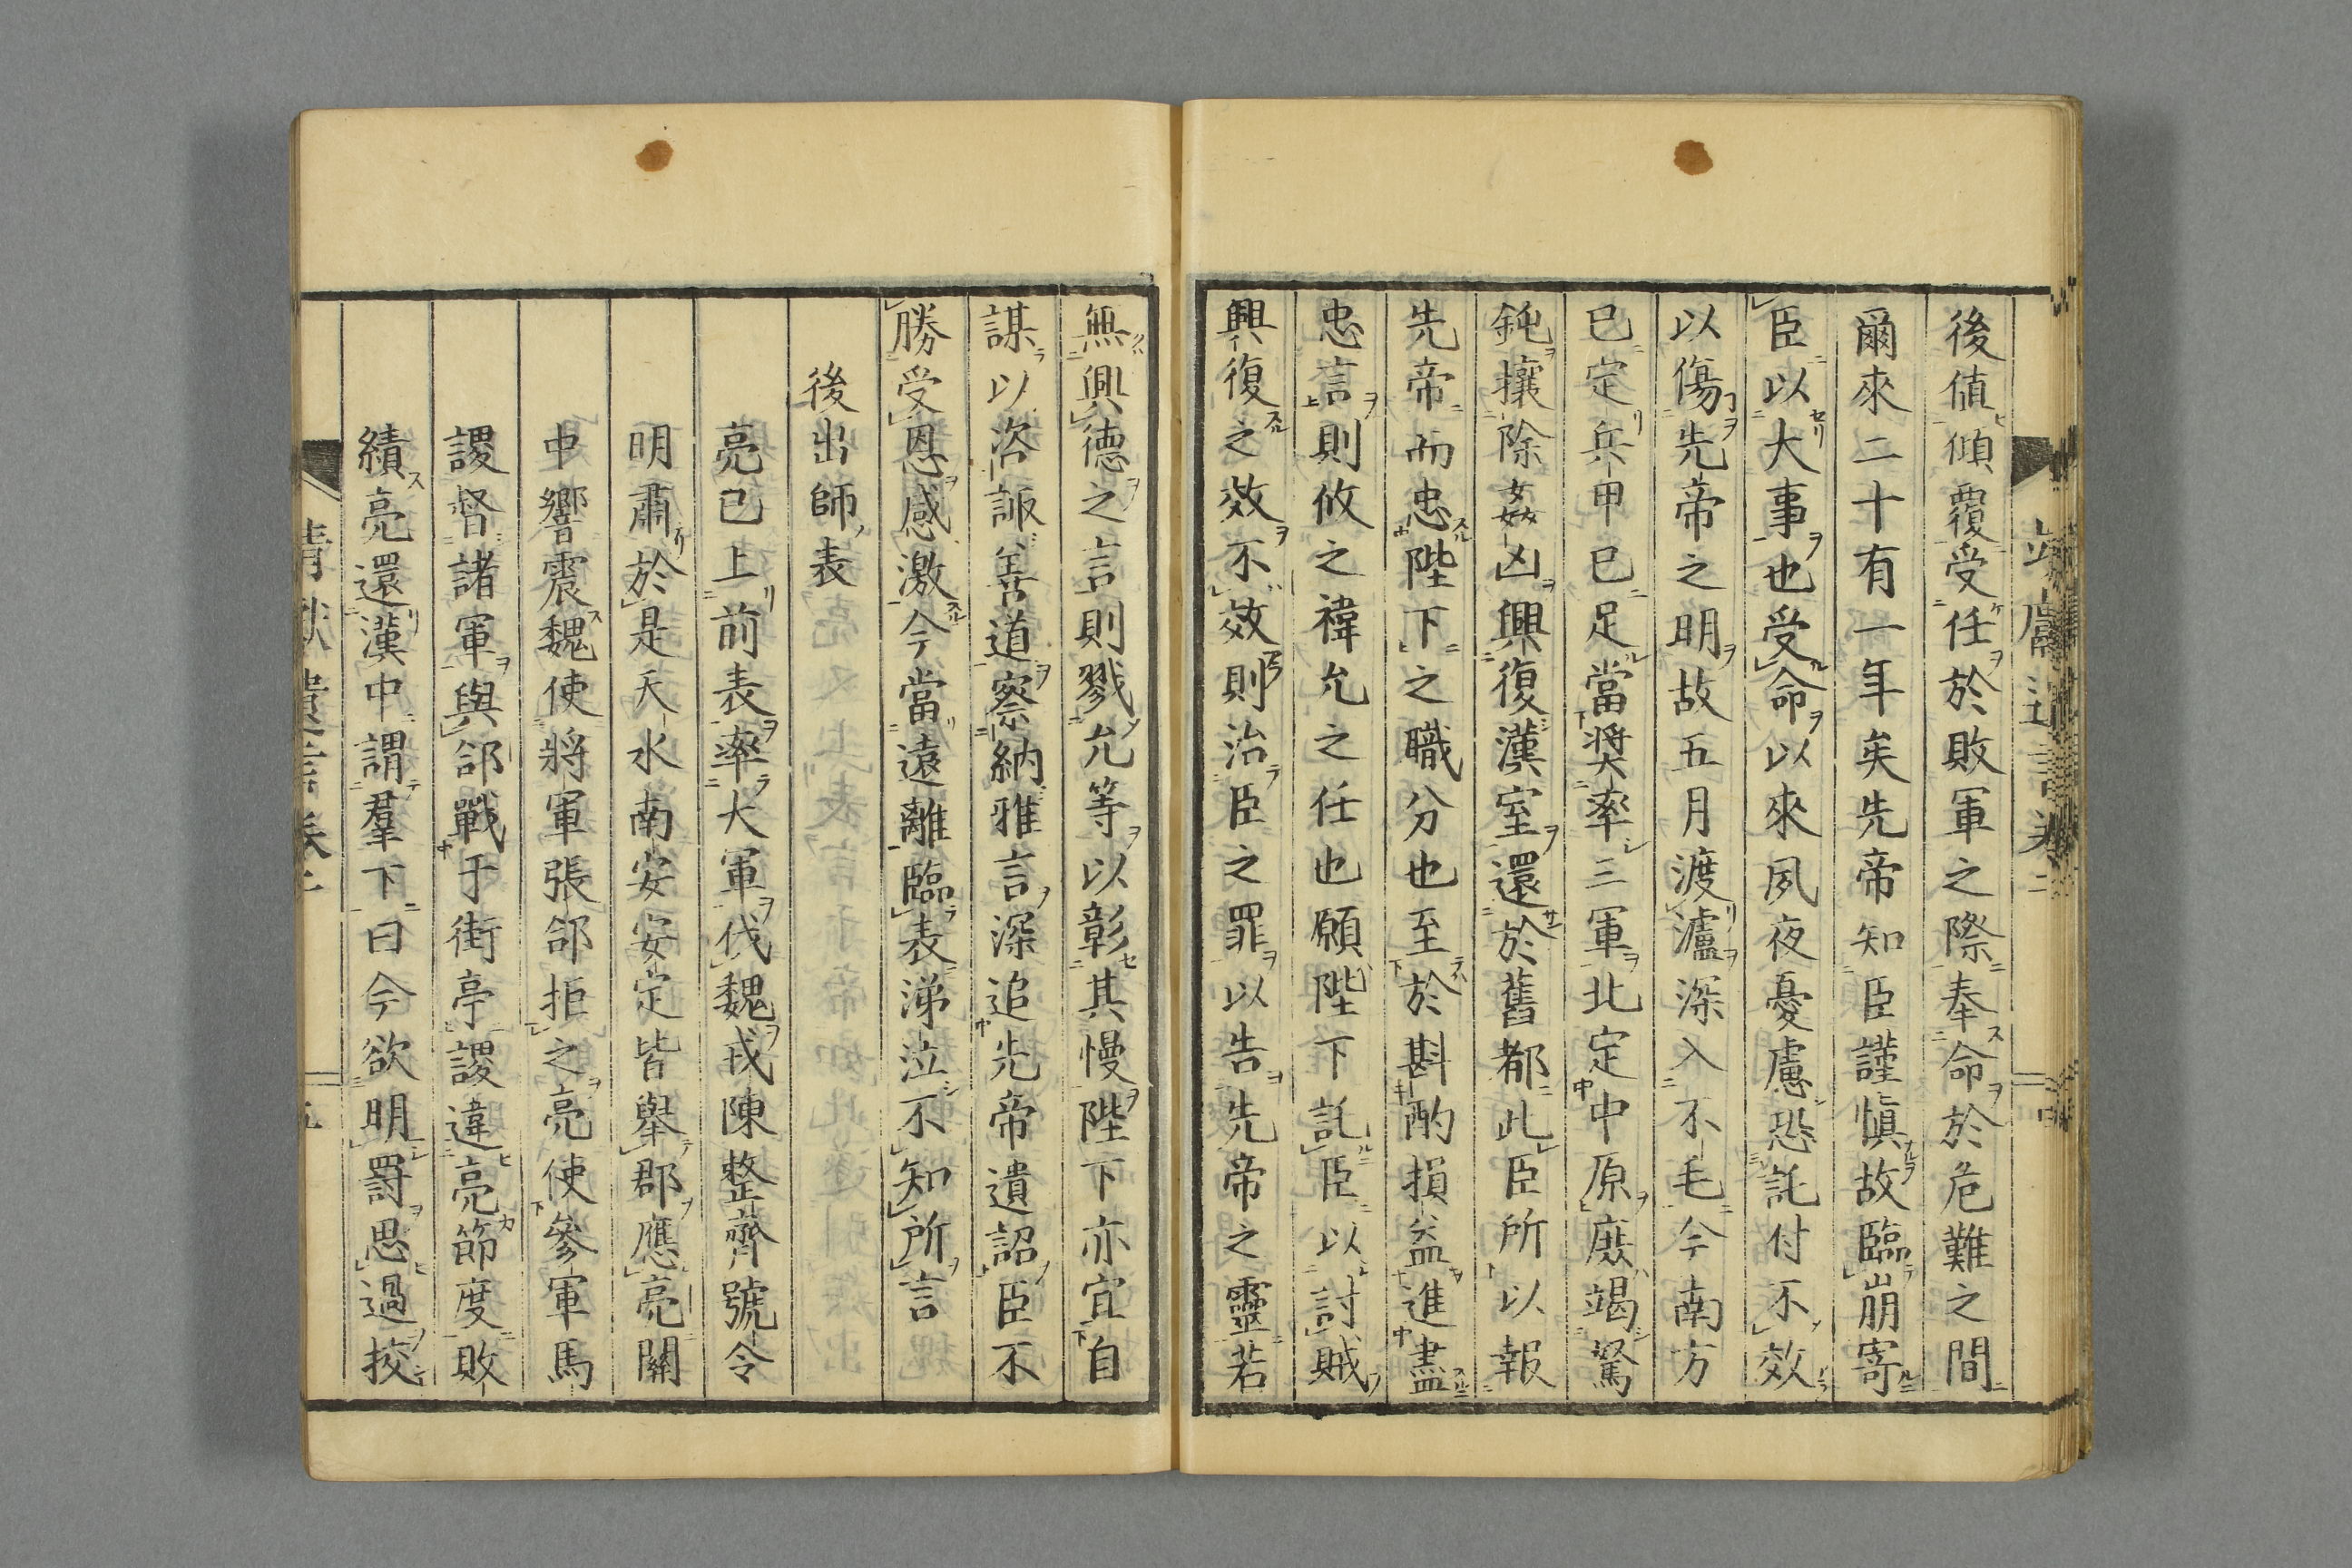 後値傾覆受任於敗軍之際奉命於危難之間
爾來二十有一年矣先帝知臣謹愼故臨崩寄
臣以大事也受命以來夙夜憂慮恐託付不效
以傷先帝之明故五月渡瀘深入不毛今南方
已定兵甲已足當奨率三軍北定中原庶竭駑
鈍攘除姦凶興復漢室還於舊都此臣所以報
先帝而忠陛下之職分也至於斟酌損益進盡
忠言則攸之禕允之任也願陛下託臣以討賊
興復之效不效則治臣之罪以告先帝之靈若
無興德之言則戮允等以彰其慢陛下亦宜自
謀以咨諏善道察納雅言深追先帝遺詔臣不
勝受恩感激今當遠離臨表涕泣不知所言
後出師表
亮已上前表率大軍伐魏戎陳整齊號令
明肅於是天水南安安定皆擧郡應亮關
中響震魏使將軍張郃拒之亮使參軍馬
謖督諸軍與郃戰于街亭謖違亮節度敗
績亮還漢中謂羣下曰今欲明罸思過挍